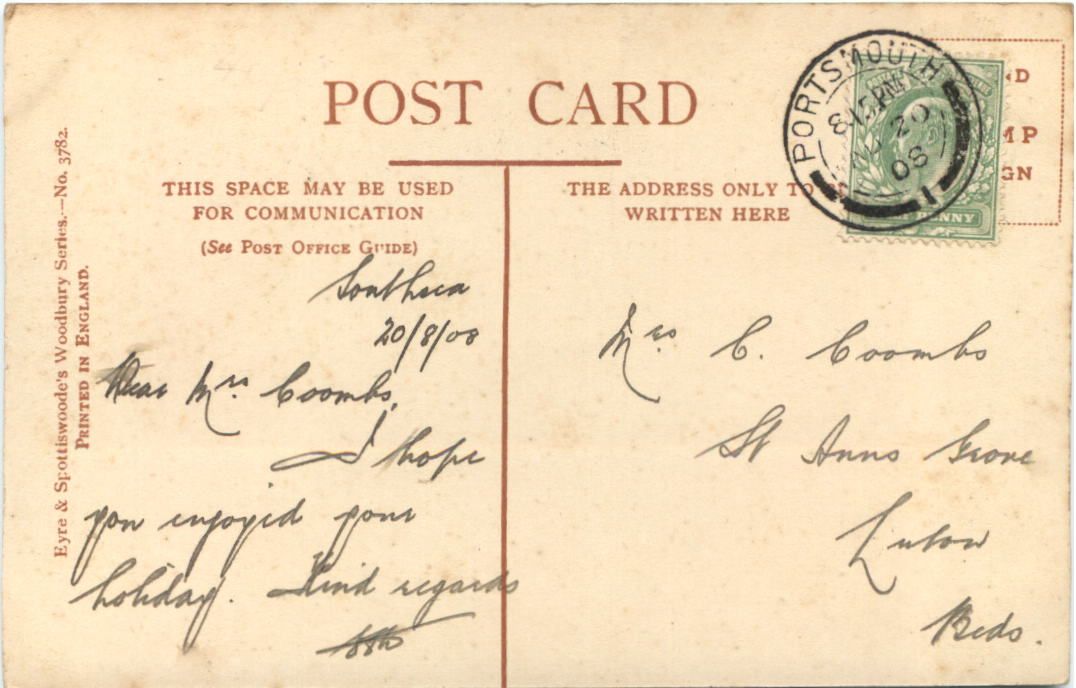 POST CARD
THIS SPACE MAY BE USED
FOR COMMUNICATION
(See POST OFFICE GUIDE)
THE ADDRESS ONLY TO
WRITTEN HERE
D
MP
GN
PORTSMOUTH
8.15 PM
AU 20
08
1
PENNY
Eyre & Spottiswoode's Woodbury Series.—No. 3782.
PRINTED IN ENGLAND.
Southsea
20/8/08
Dear Mrs. Coombs,
I hope
you enjoyed your
holiday. Kind regards
Mrs C. Coombs
St Anns Grove
Luton
Beds.